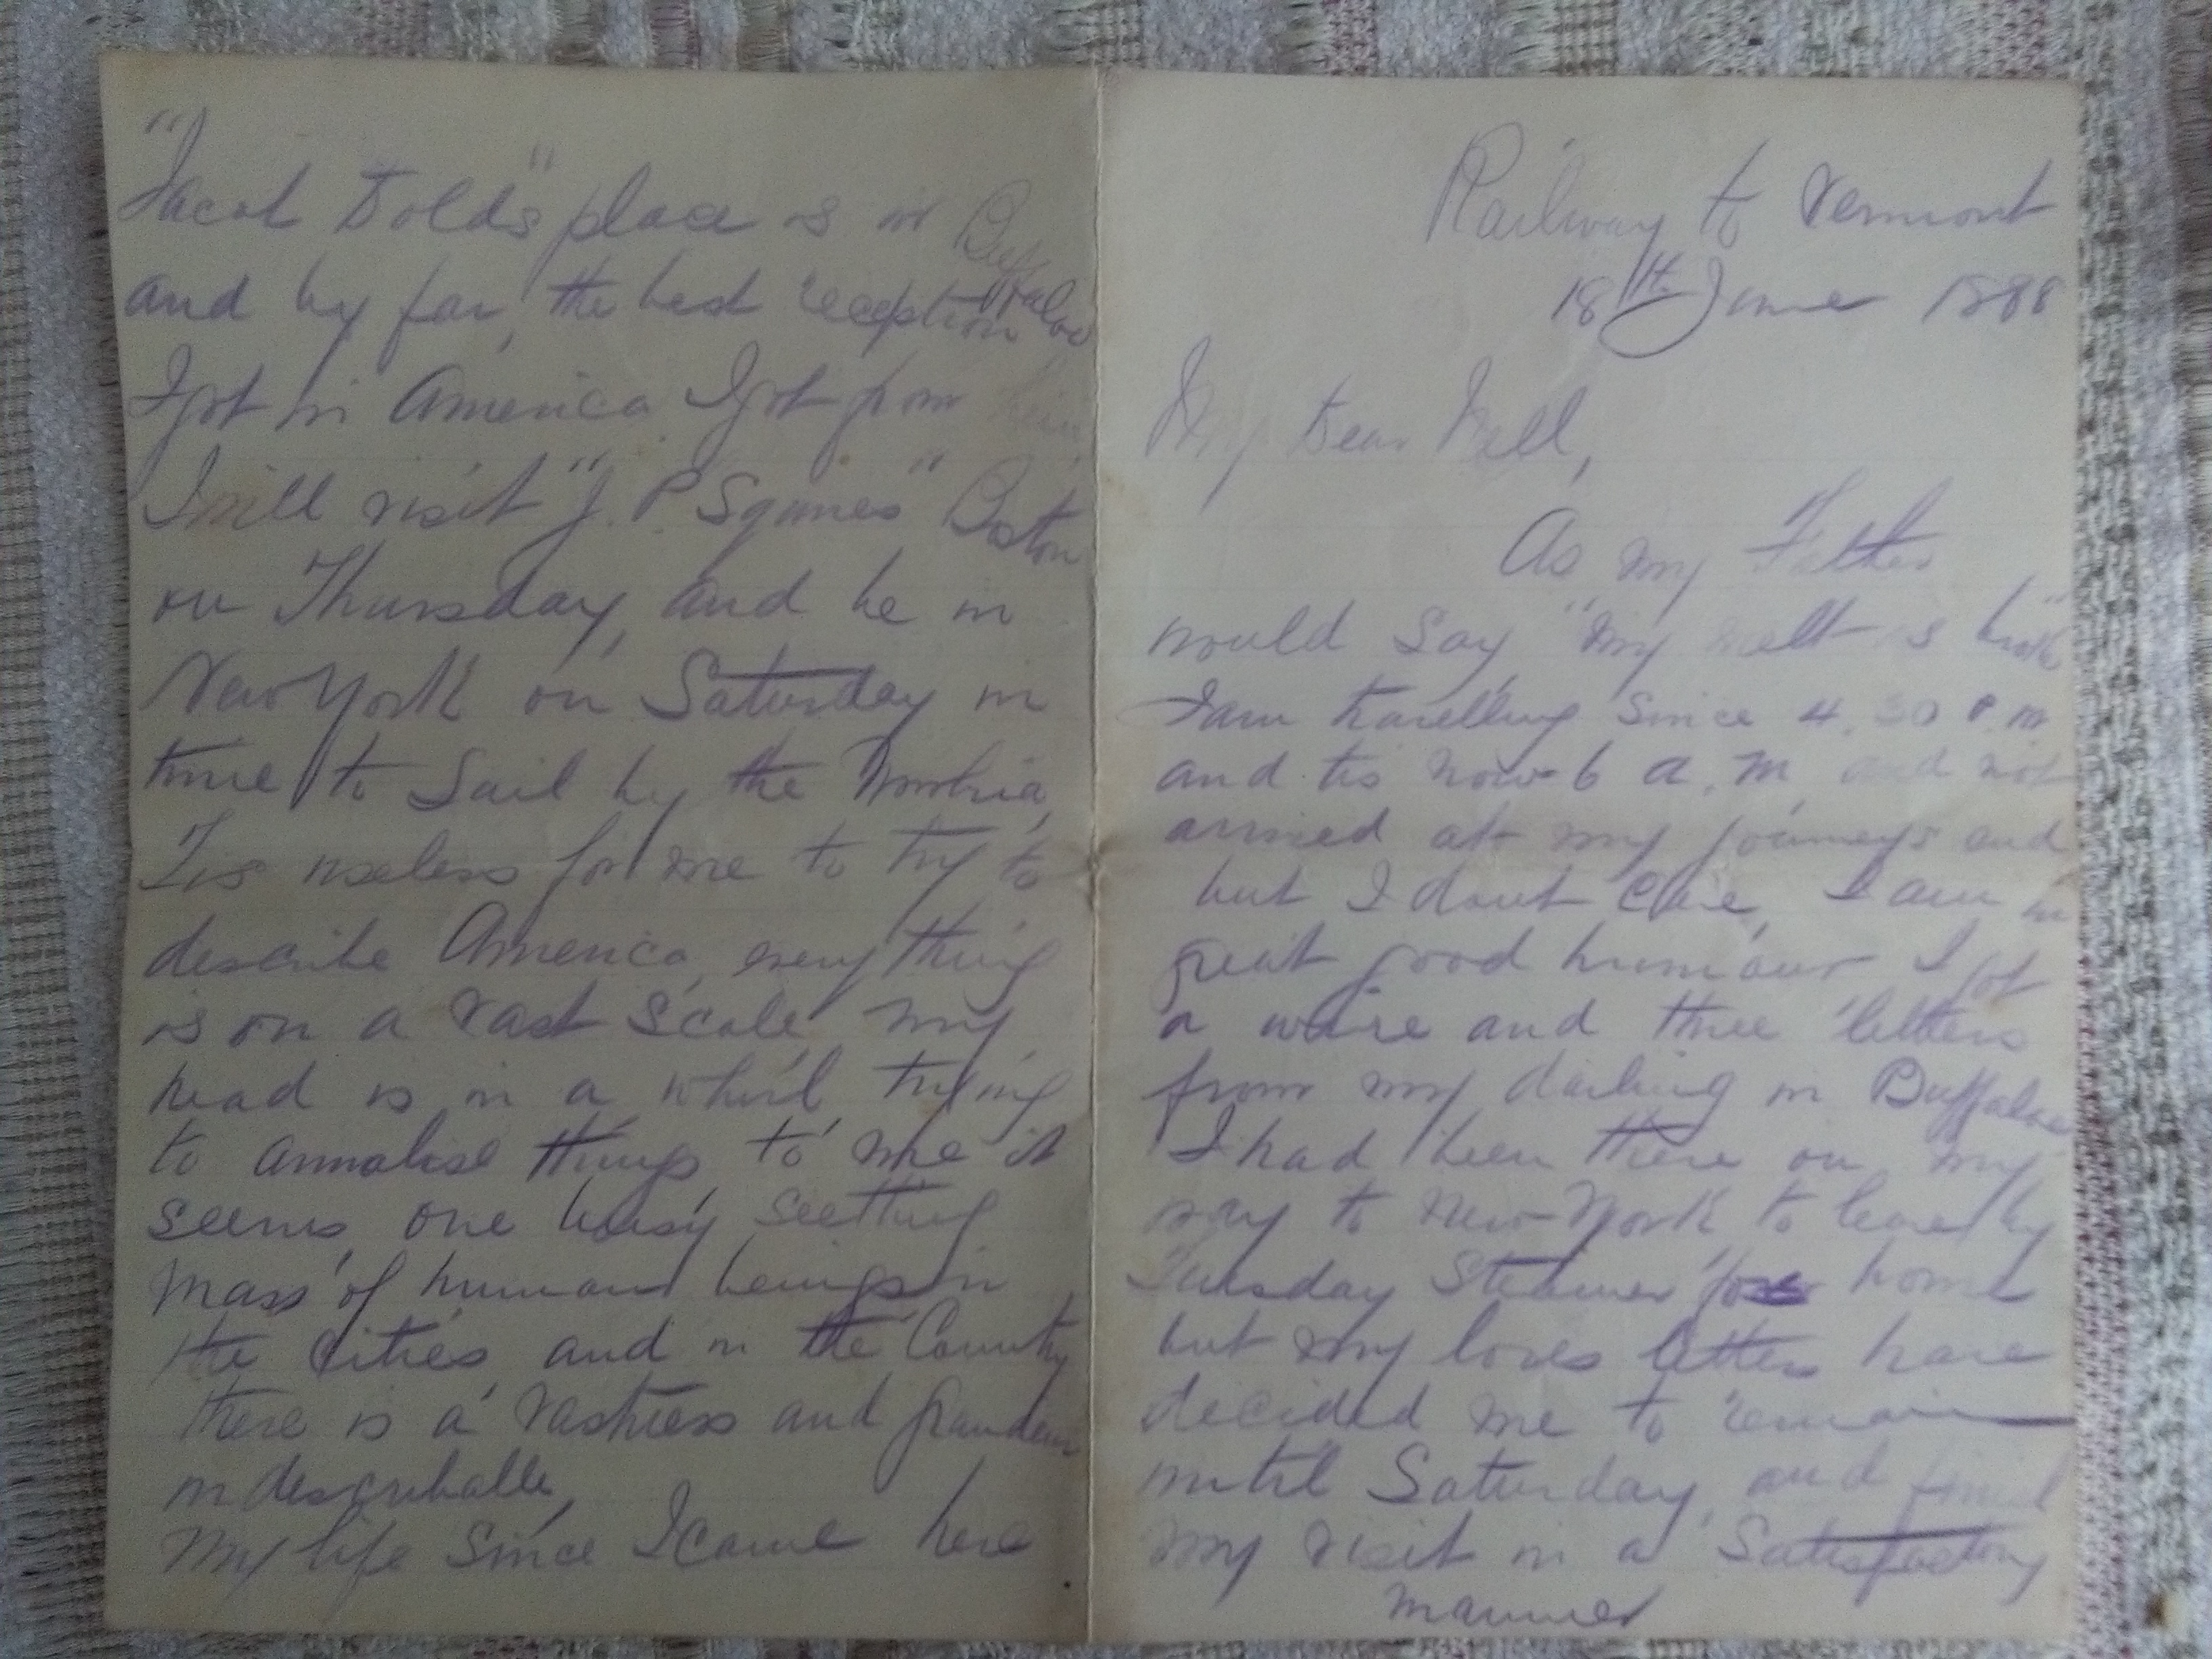 Railway to Vermont
18th June 1888
My Dear Nell,
As my Father
would say, "my melt is broke"
I am travelling since 4.30 P.M
and tis now 6 a.m, and not
arrived at my journeys end
but I dont care, I am in
great good humour I got
a wire and three letters
from my darling in Buffaloe
I had been there on my
way to New-York to leave by
Tuesday Steamer for home
but my loves letters have
decided me to remain
until Saturday, and finish
my visit in a Satisfactory
manner
"Jacob Dold's" place is in Buffaloe
and by far, the best reception
I got in America I got from him
I will visit "J. P. Squires" Boston
on Thursday, and be in
New York on Saturday in
time to Sail by the Umbria,
Tis useless for me to try to
describe America, every thing
is on a vast Scale my
head is in a whirl, trying
to annalise things to me it
seems, one busy seething
Mass of human beings in
the Cities, and in the Country
there is a vastness and grandeur
indescribable,
My life Since I came here